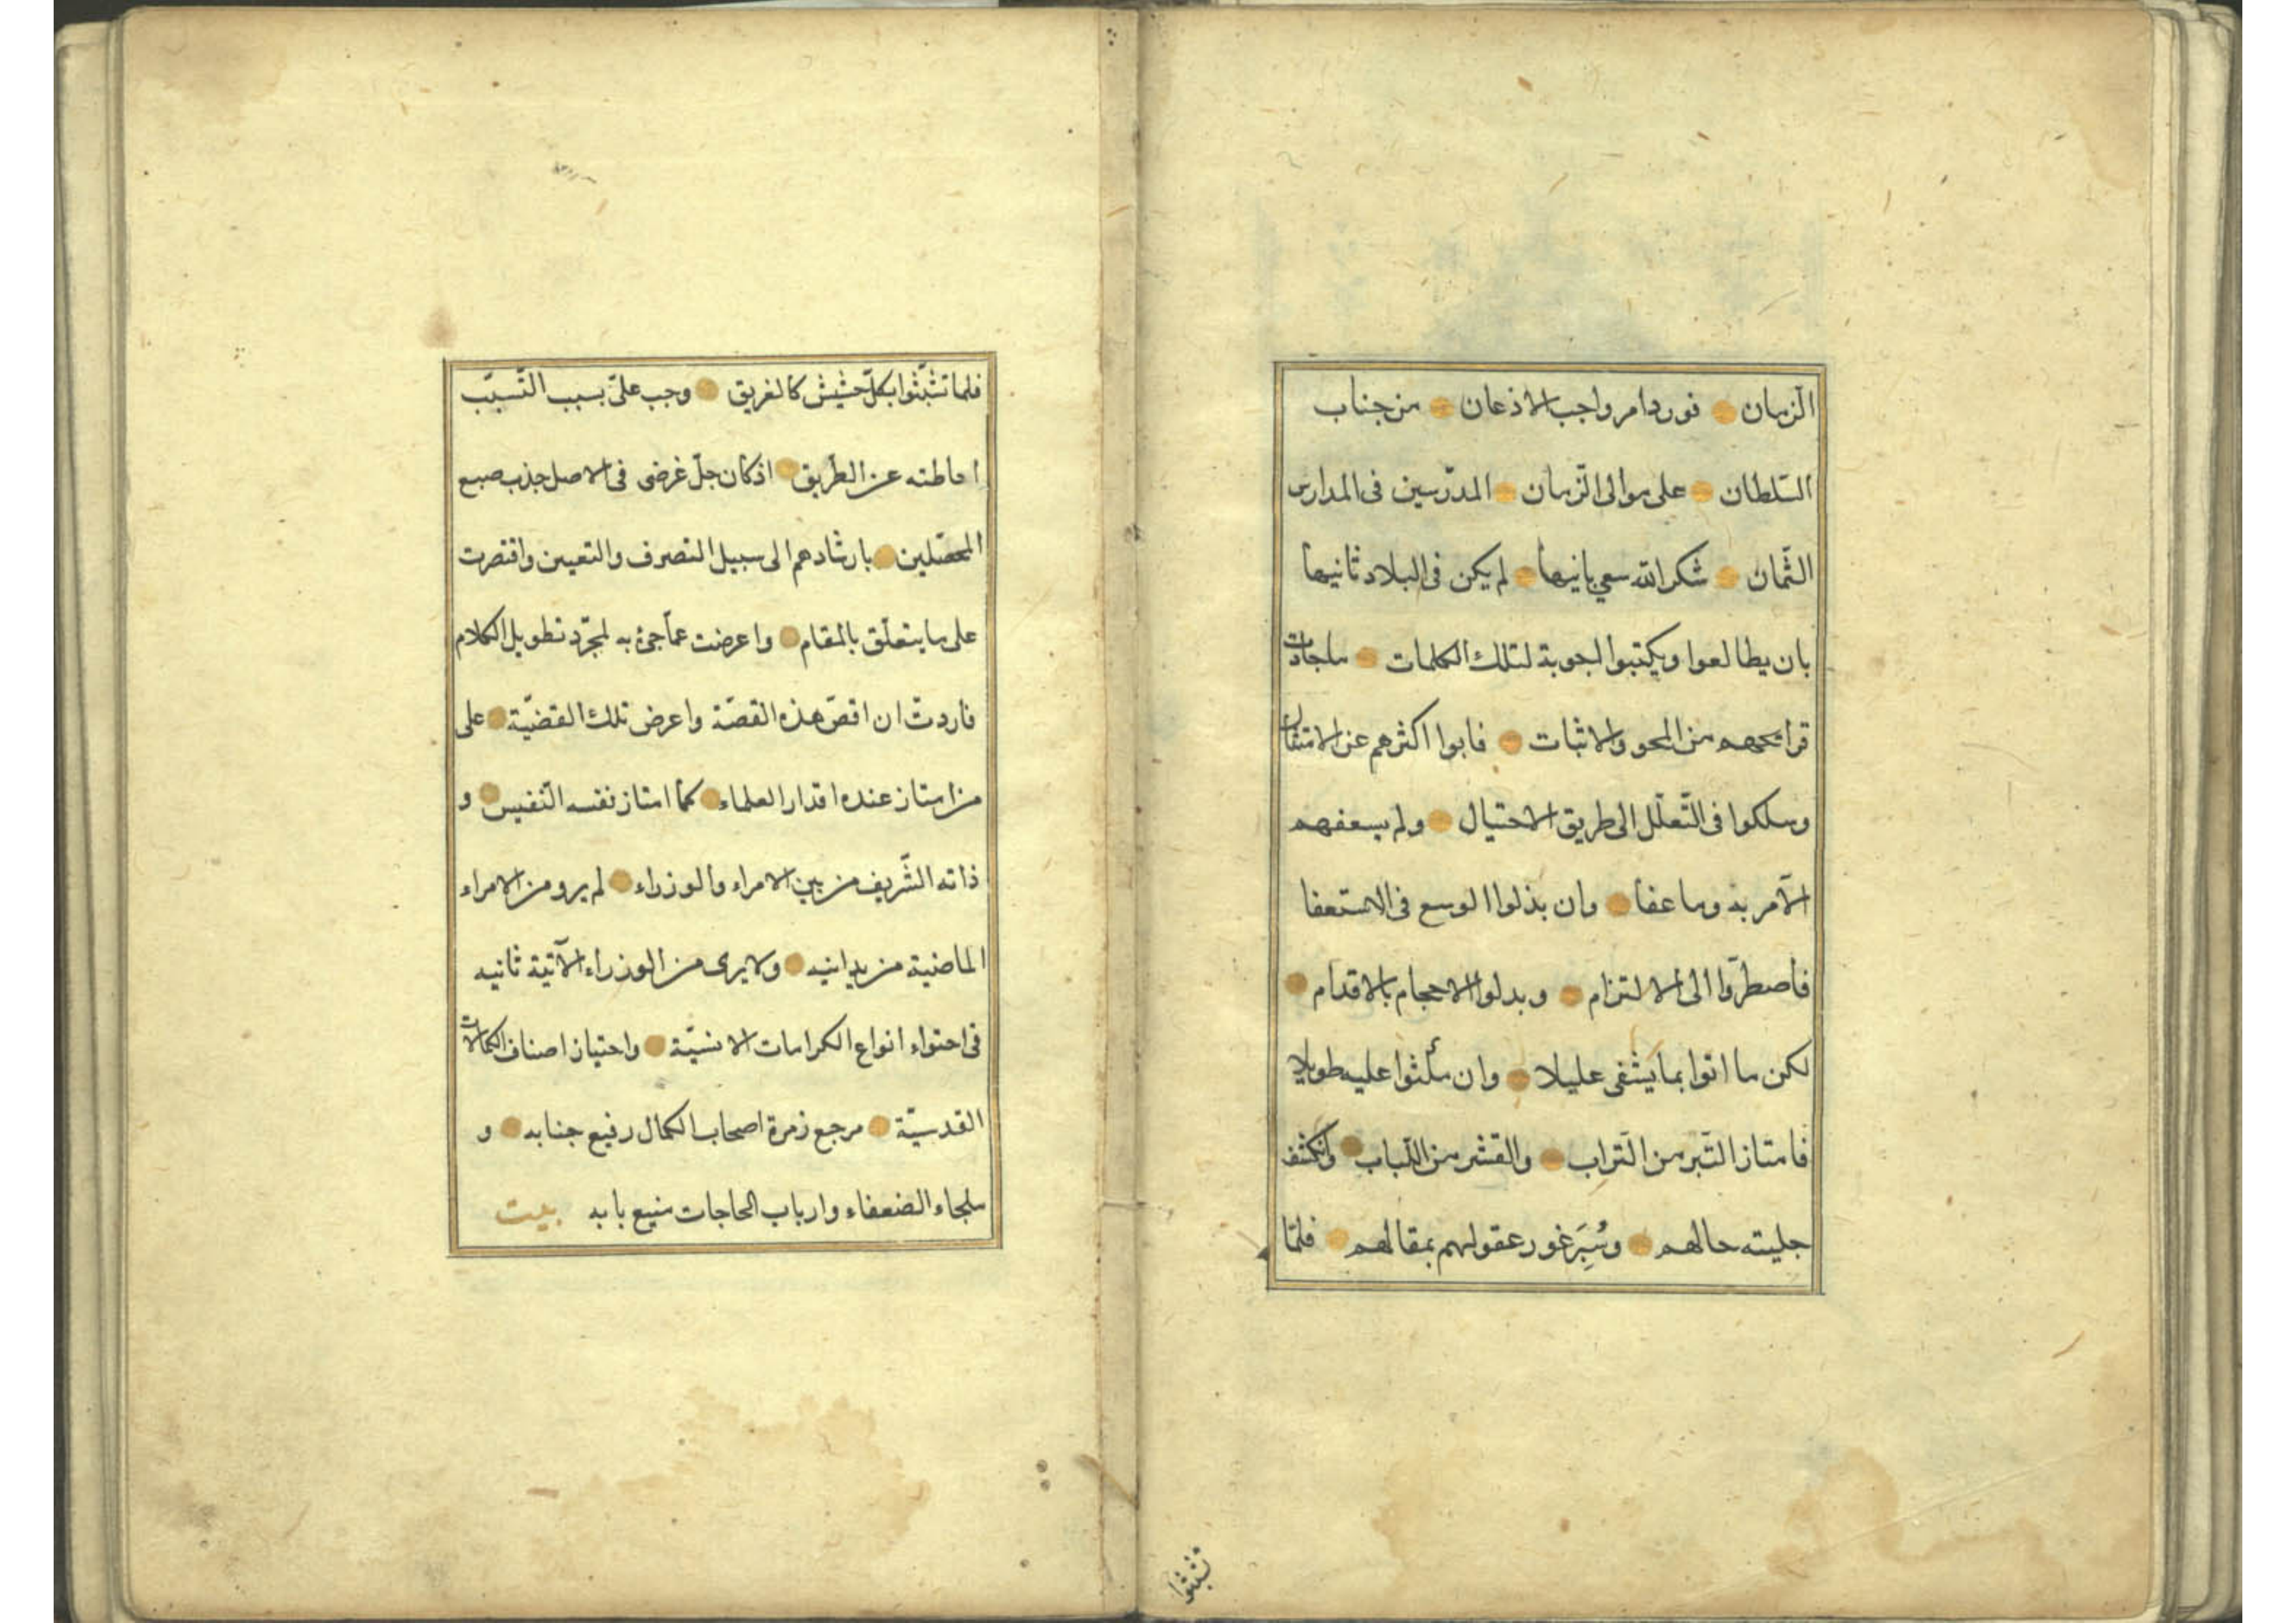 الزمان فورد امر واجب الاذعان من جناب
السّلطان على موالى الزّمان المدرّسين فى المدارس
الثّمان شكر الله سعى بانيها لم يكن فى البلاد ثانيها
بان يطالعوا ويكتبوا اجوبة لتلك الكلمات ما جادت
قرائحهم من المحو والاثبات فابوا اكثرهم عن الامتثال
وسلكوا فى التّعلّل الى طريق الاحتيال ولم يسعفهم
الآمر به وما عفا وان بذلوا الوسع فى الاستعفا
فاضطرّوا الى الالتزام وبدلوا الاحجام بالاقدام
لكن ما اتوا بما يشفى عليلا وان مكثوا عليه طويلا
فامتاز التّبر من التّراب والقشر من اللّباب وانكشف
جليته حالهم وسُبِرَ غور عقولهم بمقالهم فلمّا
تشبّثوا
فلما تشبّثوا بكلّ حشيش كالغريق وجب علىّ بسبب التّسبّب
اماطته عن الطّريق اذ كان جلّ غرضى فى الاصل جذب ضبع
المحصّلين بارشادهم الى سبيل التصرف والتعيين واقتصرت
على ما يتعلّق بالمقام واعرضت عمّا جئ به لمجرّد تطويل الكلام
فاردت ان اقصّ هذه القصّة واعرض تلك القضيّة على
من امتاز عنده اقدار العلماء كما امتاز نفسه النّفيس و
ذاته الشّريف من بين الامراء والوزراء لم يرو من الامراء
الماضية من يدانيه ولا يرى من الوزراء الآتية ثانيه
فى احتواء انواع الكرامات الانسيّة واحتياز اصناف الكمالات
القدسيّة مرجع زمرة اصحاب الكمال رفيع جنابه و
ملجاء الضعفاء وارباب الحاجات منيع بابه بيت